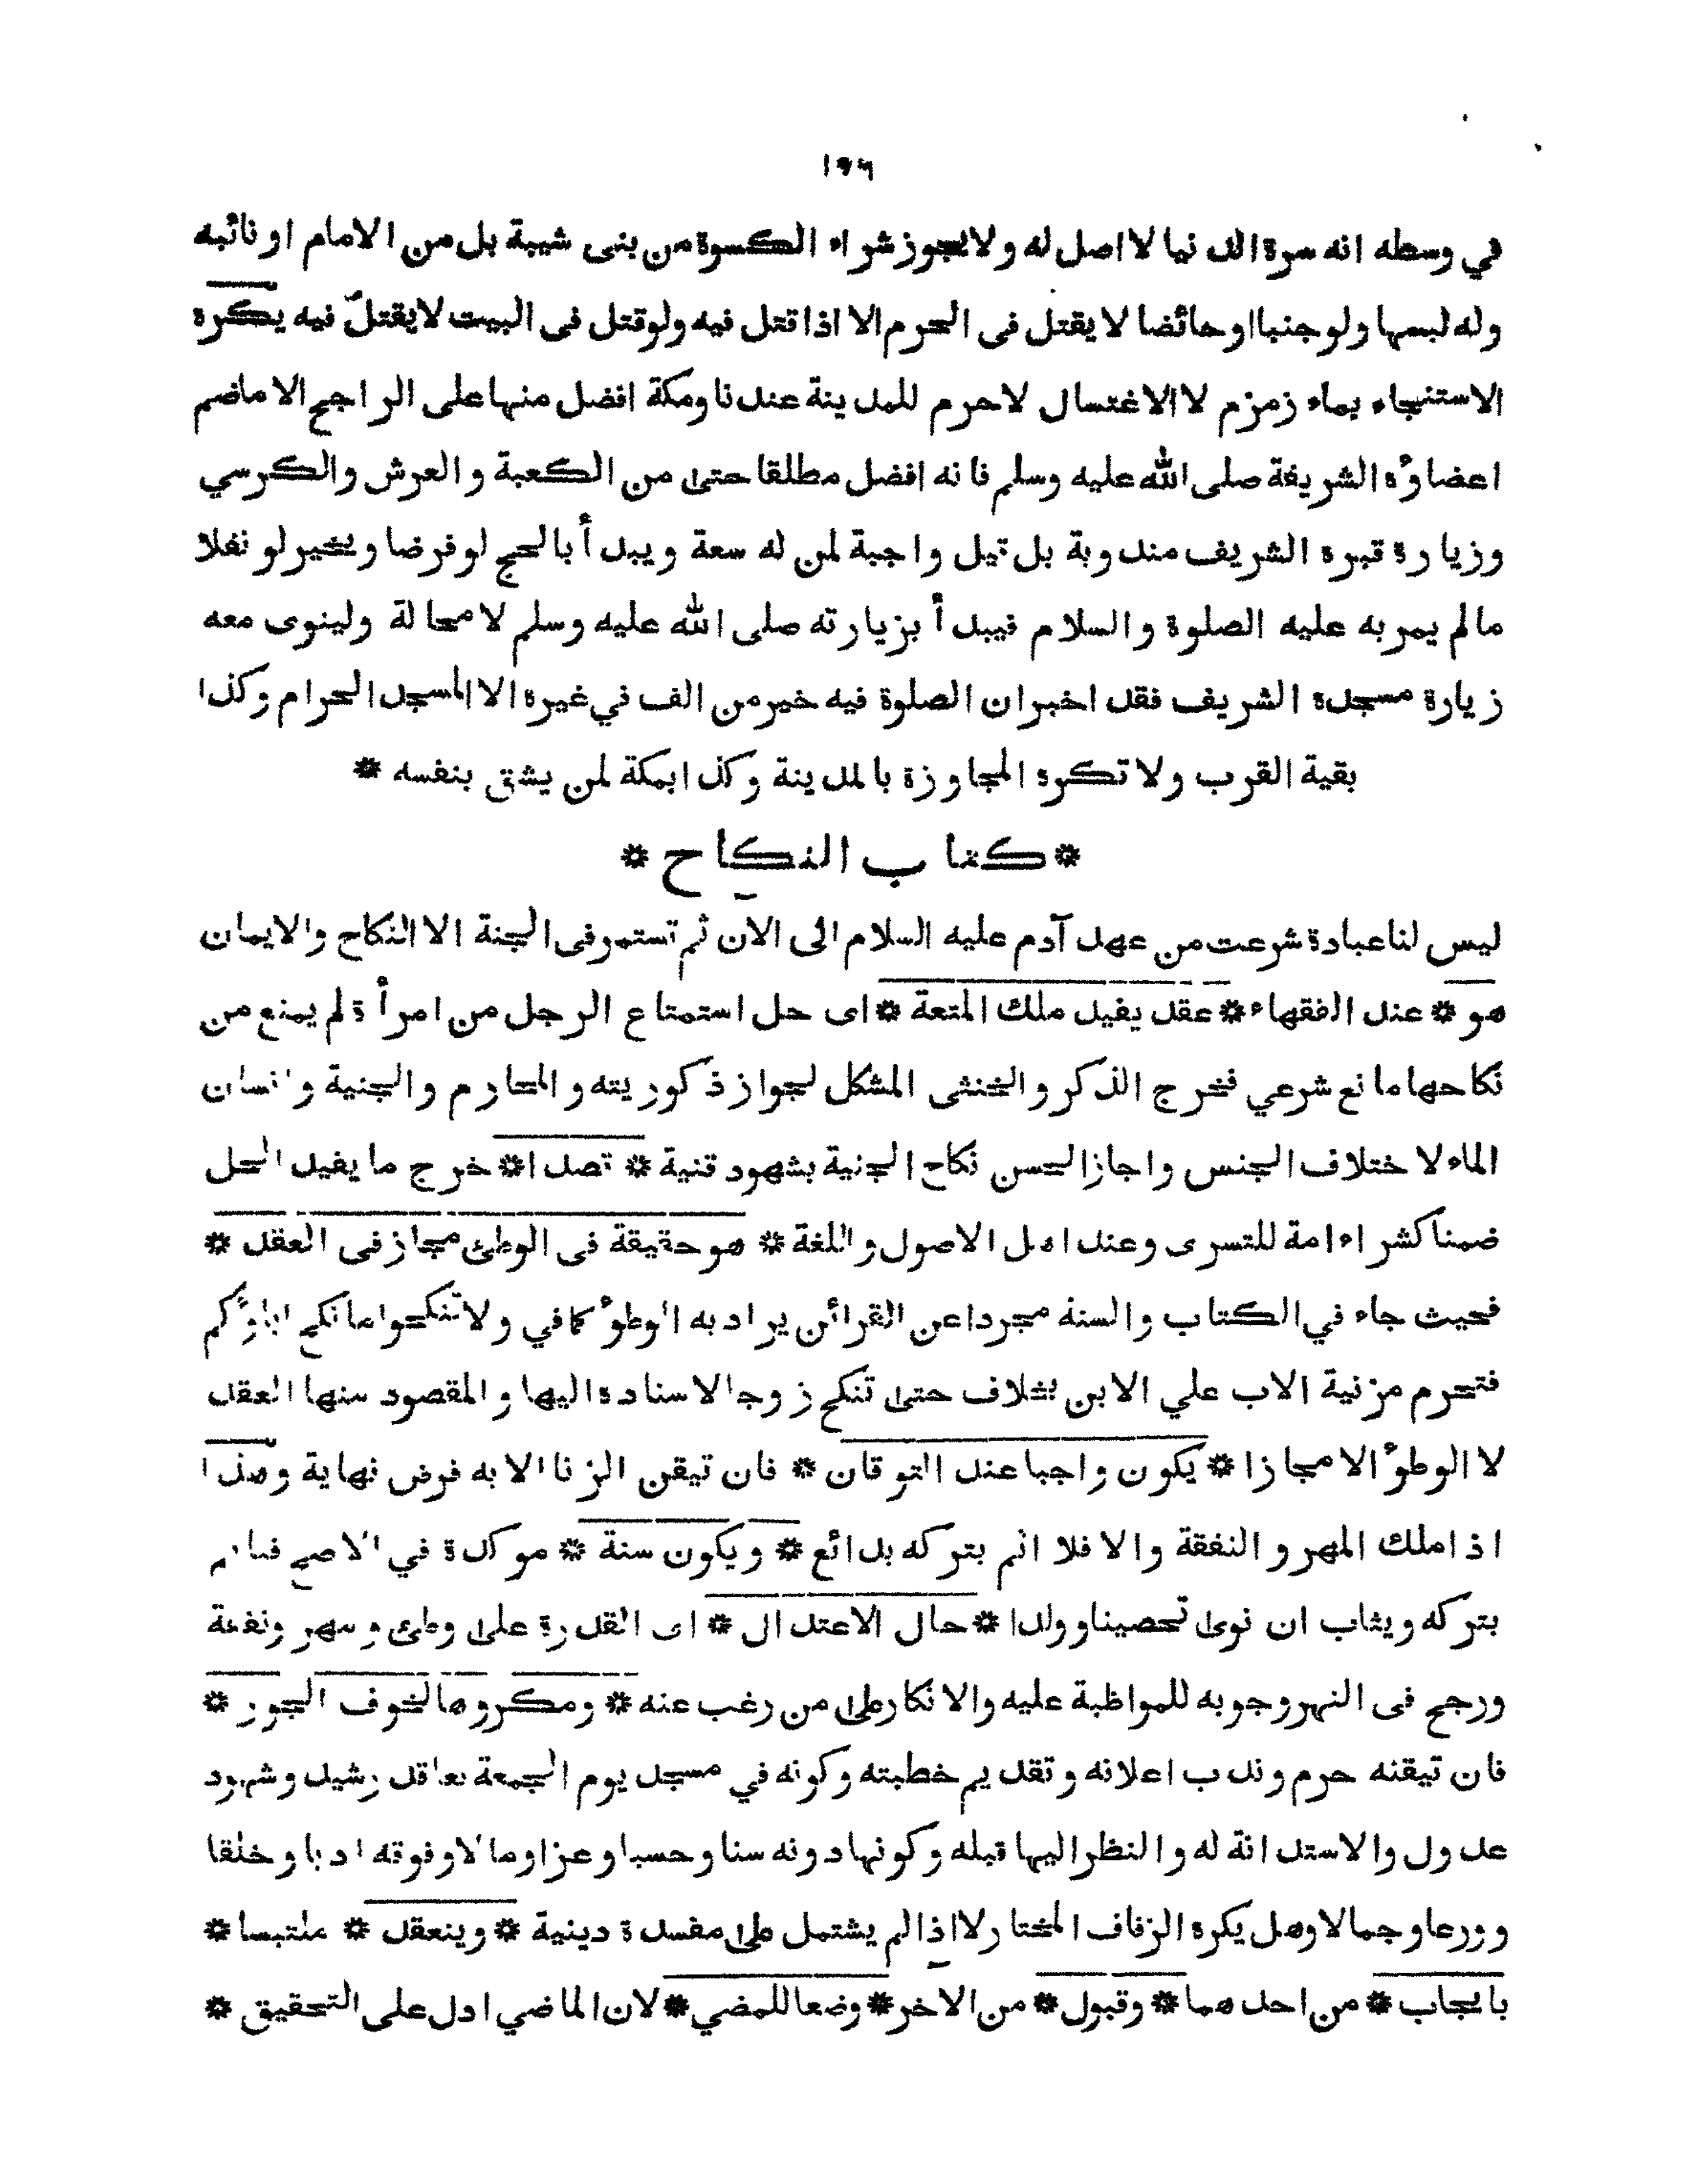 ١٩٦
في وسطه انه سرة الدنيا لا اصل له ولا يجوز شراء الكسوة من بنى شيبة بل من الامام او نائبه
وله لبسها ولو جنبا او حائضا لا يقتل فى الحرم الا اذا قتل فيه ولو قتل فى البيت لا يقتل فيه يكره
الاستنجاء بماء زمزم لا الاغتسال لا حرم للمدينة عندنا ومكة افضل منها على الراجح الا ماضم
اعضاؤه الشريفة صلى الله عليه وسلم فانه افضل مطلقا حتى من الكعبة والعرش والكرسي
وزيارة قبره الشريف مندوبة بل قيل واجبة لمن له سعة ويبدأ بالحج لو فرضا ويخير لو نفلا
مالم يمر به عليه الصلوة والسلام فيبدأ بزيارته صلى الله عليه وسلم لا محالة ولينوى معه
زيارة مسجده الشريف فقد اخبر ان الصلوة فيه خير من الف في غيره الا المسجد الحرام وكذا
بقية القرب ولا تكره المجاوزة بالمدينة وكذا بمكة لمن يشق بنفسه *
* كتاب النكاح *
ليس لنا عبادة شرعت من عهد آدم عليه السلام الى الان ثم تستمر فى الجنة الا النكاح والايمان
هو * عند الفقهاء * عقد يفيد ملك المتعة * اى حل استمتاع الرجل من امرأة لم يمنع من
نكاحها مانع شرعي فخرج الذكر والخنثى المشكل لجواز ذكوريته والمحارم والجنية وانسان
الماء لاختلاف الجنس واجاز الحسن نكاح الجنية بشهود قنية * قصدا * خرج ما يفيد الحل
ضمنا كشراء امة للتسرى وعند اهل الاصول واللغة * هو حقيقة فى الوطئ مجاز فى العقد *
فحيث جاء في الكتاب والسنة مجردا عن القرائن يراد به الوطؤ كما في ولا تنكحوا ما نكح اباؤكم
فتحرم مزنية الاب علي الابن بخلاف حتى تنكح زوجا لاسناده اليها والمقصود منها العقد
لا الوطؤ الا مجازا * يكون واجبا عند التوقان * فان تيقن الزنا الا به فرض نهاية وهذا
اذا ملك المهر والنفقة والا فلا اثم بتركه بدائع * ويكون سنة * موكدة في الاصح فياثم
بتركه ويثاب ان نوى تحصينا وولدا * حال الاعتدال * اى القدرة على وطئ و مهر ونفقة
ورجح فى النهر وجوبه للمواظبة عليه والانكار على من رغب عنه * ومكروها لخوف الجور *
فان تيقنه حرم وندب اعلانه وتقديم خطبته وكونه في مسجد يوم الجمعة بعاقد رشيد وشهود
عدول والاستدانة له والنظر اليها قبله وكونها دونه سنا وحسبا وعزا ومالا وفوقه ادبا وخلقا
وورعا وجمالا وهل يكره الزفاف المختار لا اذا لم يشتمل على مفسدة دينية * وينعقد * ملتبسا *
بايجاب * من احدهما * وقبول * من الاخر * وضعا للمضي * لان الماضي ادل على التحقيق *